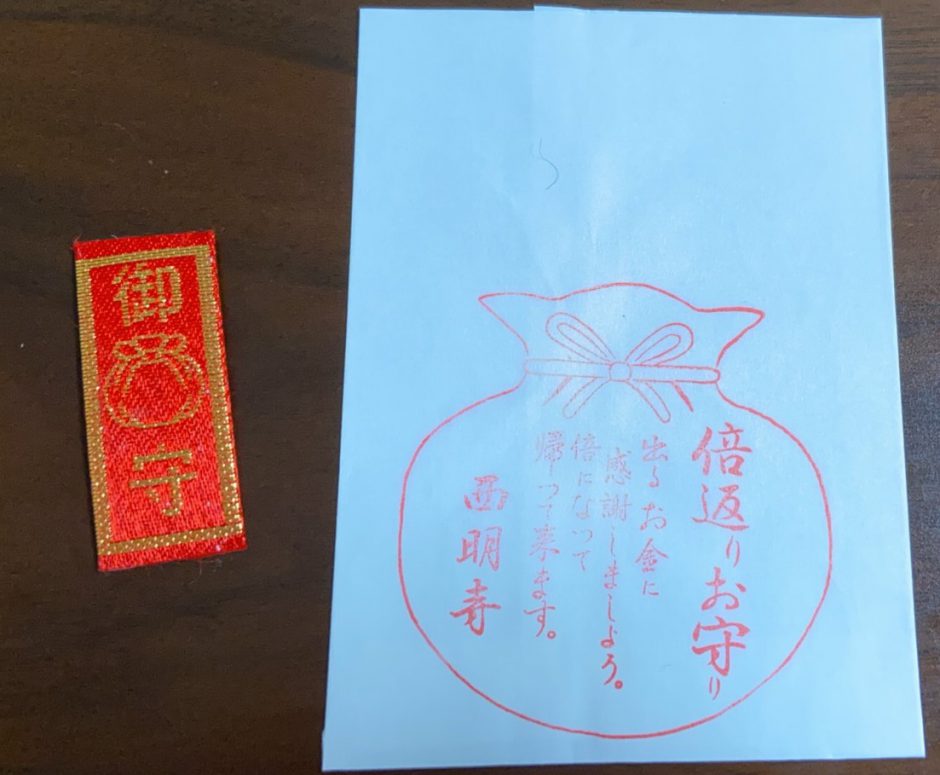 御
守
倍返りお守り
出るお金に
感謝しましょう。
倍になって
帰って来ます。
西明寺